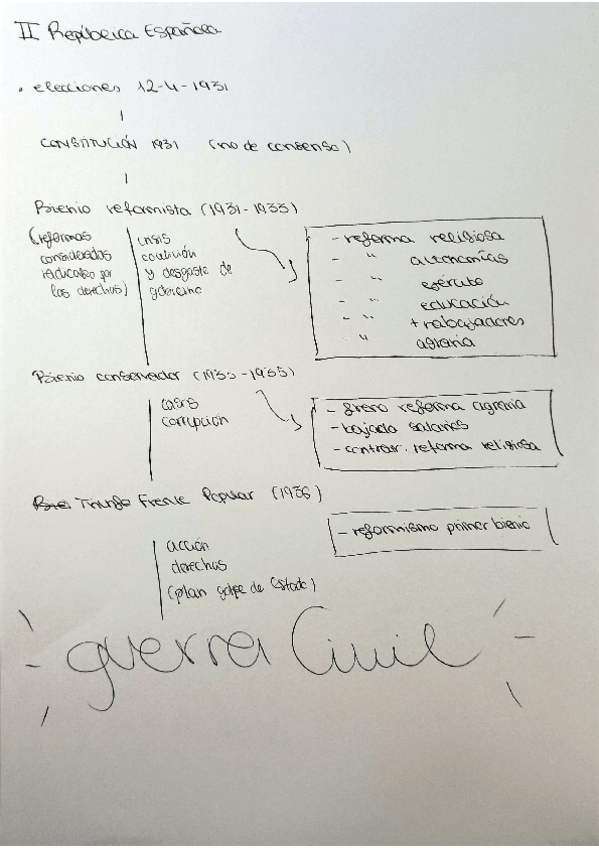 II República Española
• elecciones 12-4-1931
CONSTITUCIÓN 1931 (no de consenso)
Bienio reformista (1931-1933)
(reformas
consideradas
radicales por
las derechas)
crisis
coalición
y desgaste de
gobierno
- reforma religiosa
- " autonomías
- " ejército
- " educación
- " trabajadores
" agraria
Bienio conservador (1933-1935)
casos
corrupción
- freno reforma agraria
- bajada salarios
- contrar. reforma religiosa
Bie Triunfo Frente Popular (1936)
- reformismo primer bienio
acción
derechas
(plan golpe de Estado)
guerra Civil